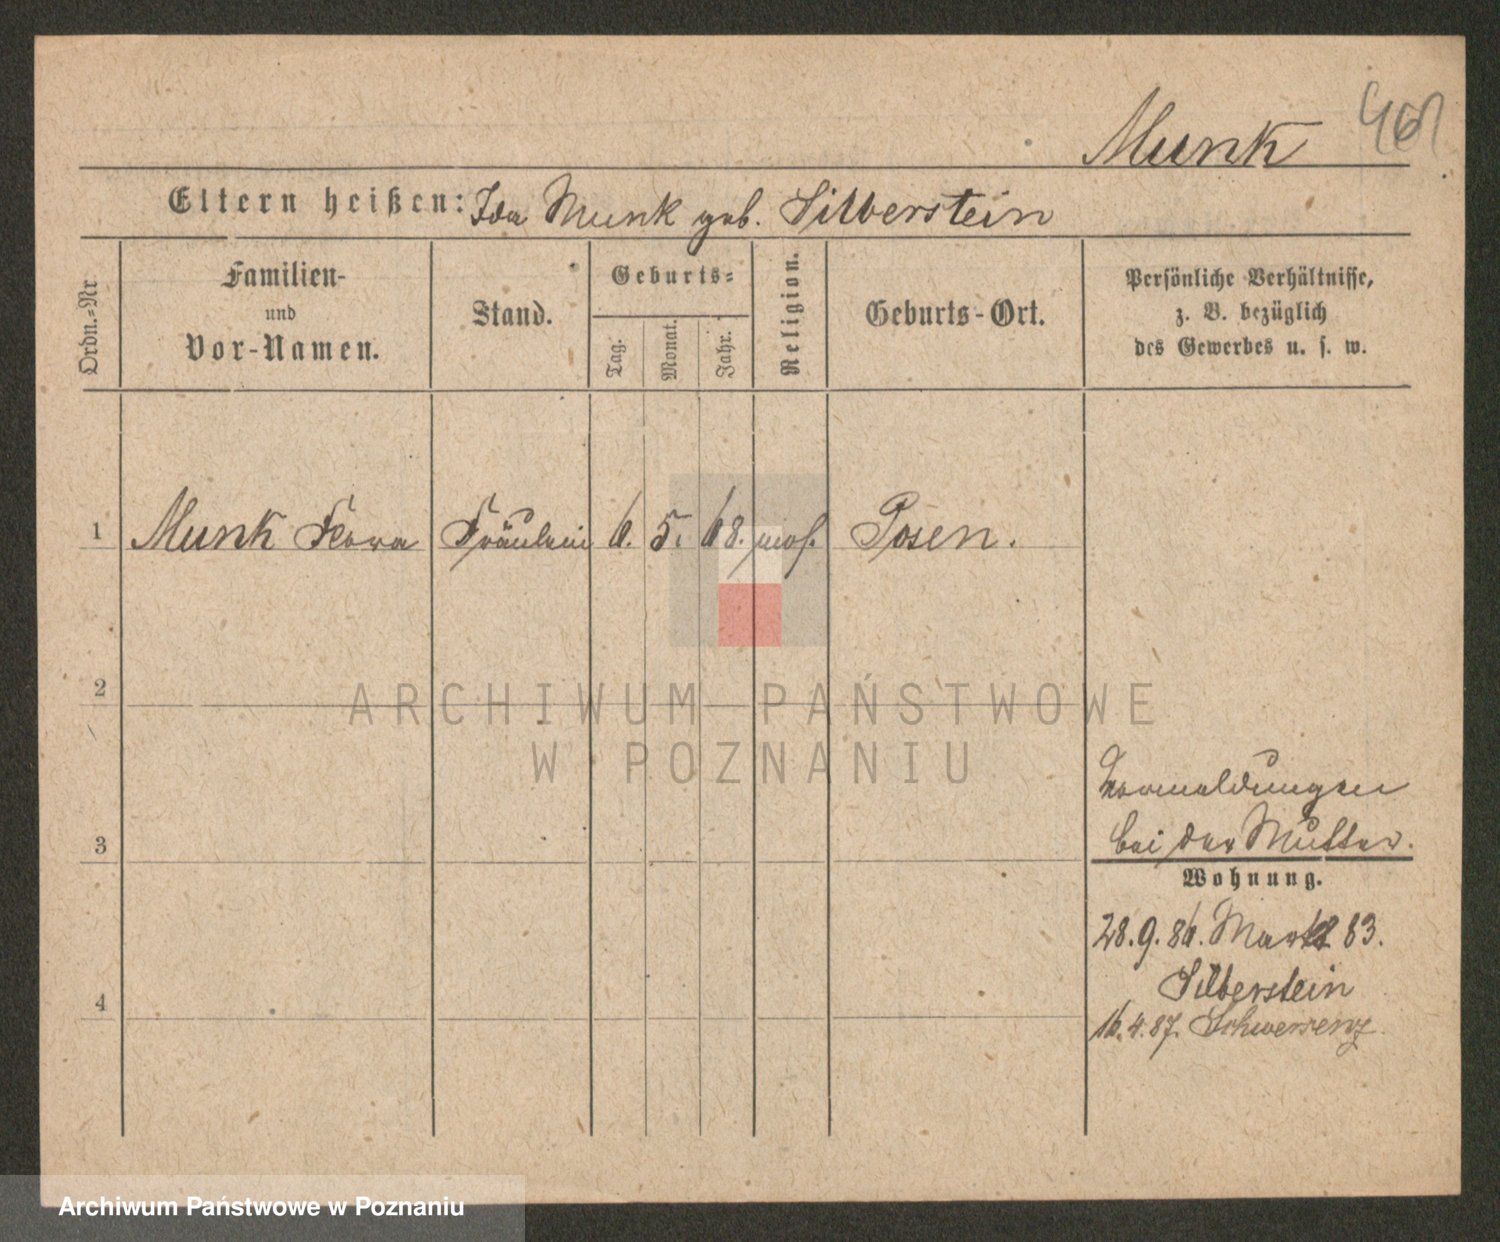 Munk 461
Eltern heißen: Ida Munk geb. Silberstein
Ordn.=Nr
Familien-
und
Vor-Namen.
Stand.
Geburts=
Tag.
Monat.
Jahr.
Religion.
Geburts-Ort.
Persönliche Verhältnisse,
z. B. bezüglich
des Gewerbes u. s. w.
1 Munk Flora Fräulein 6. 5. 68. mos. Posen.
2
ARCHIWUM PAŃSTWOWE
W POZNANIU
Vermeldungen
3 bei der Mutter.
Wohnung.
28.9.86. Markt 83.
Silberstein
4 16.4.87. Schwersenz
Archiwum Państwowe w Poznaniu